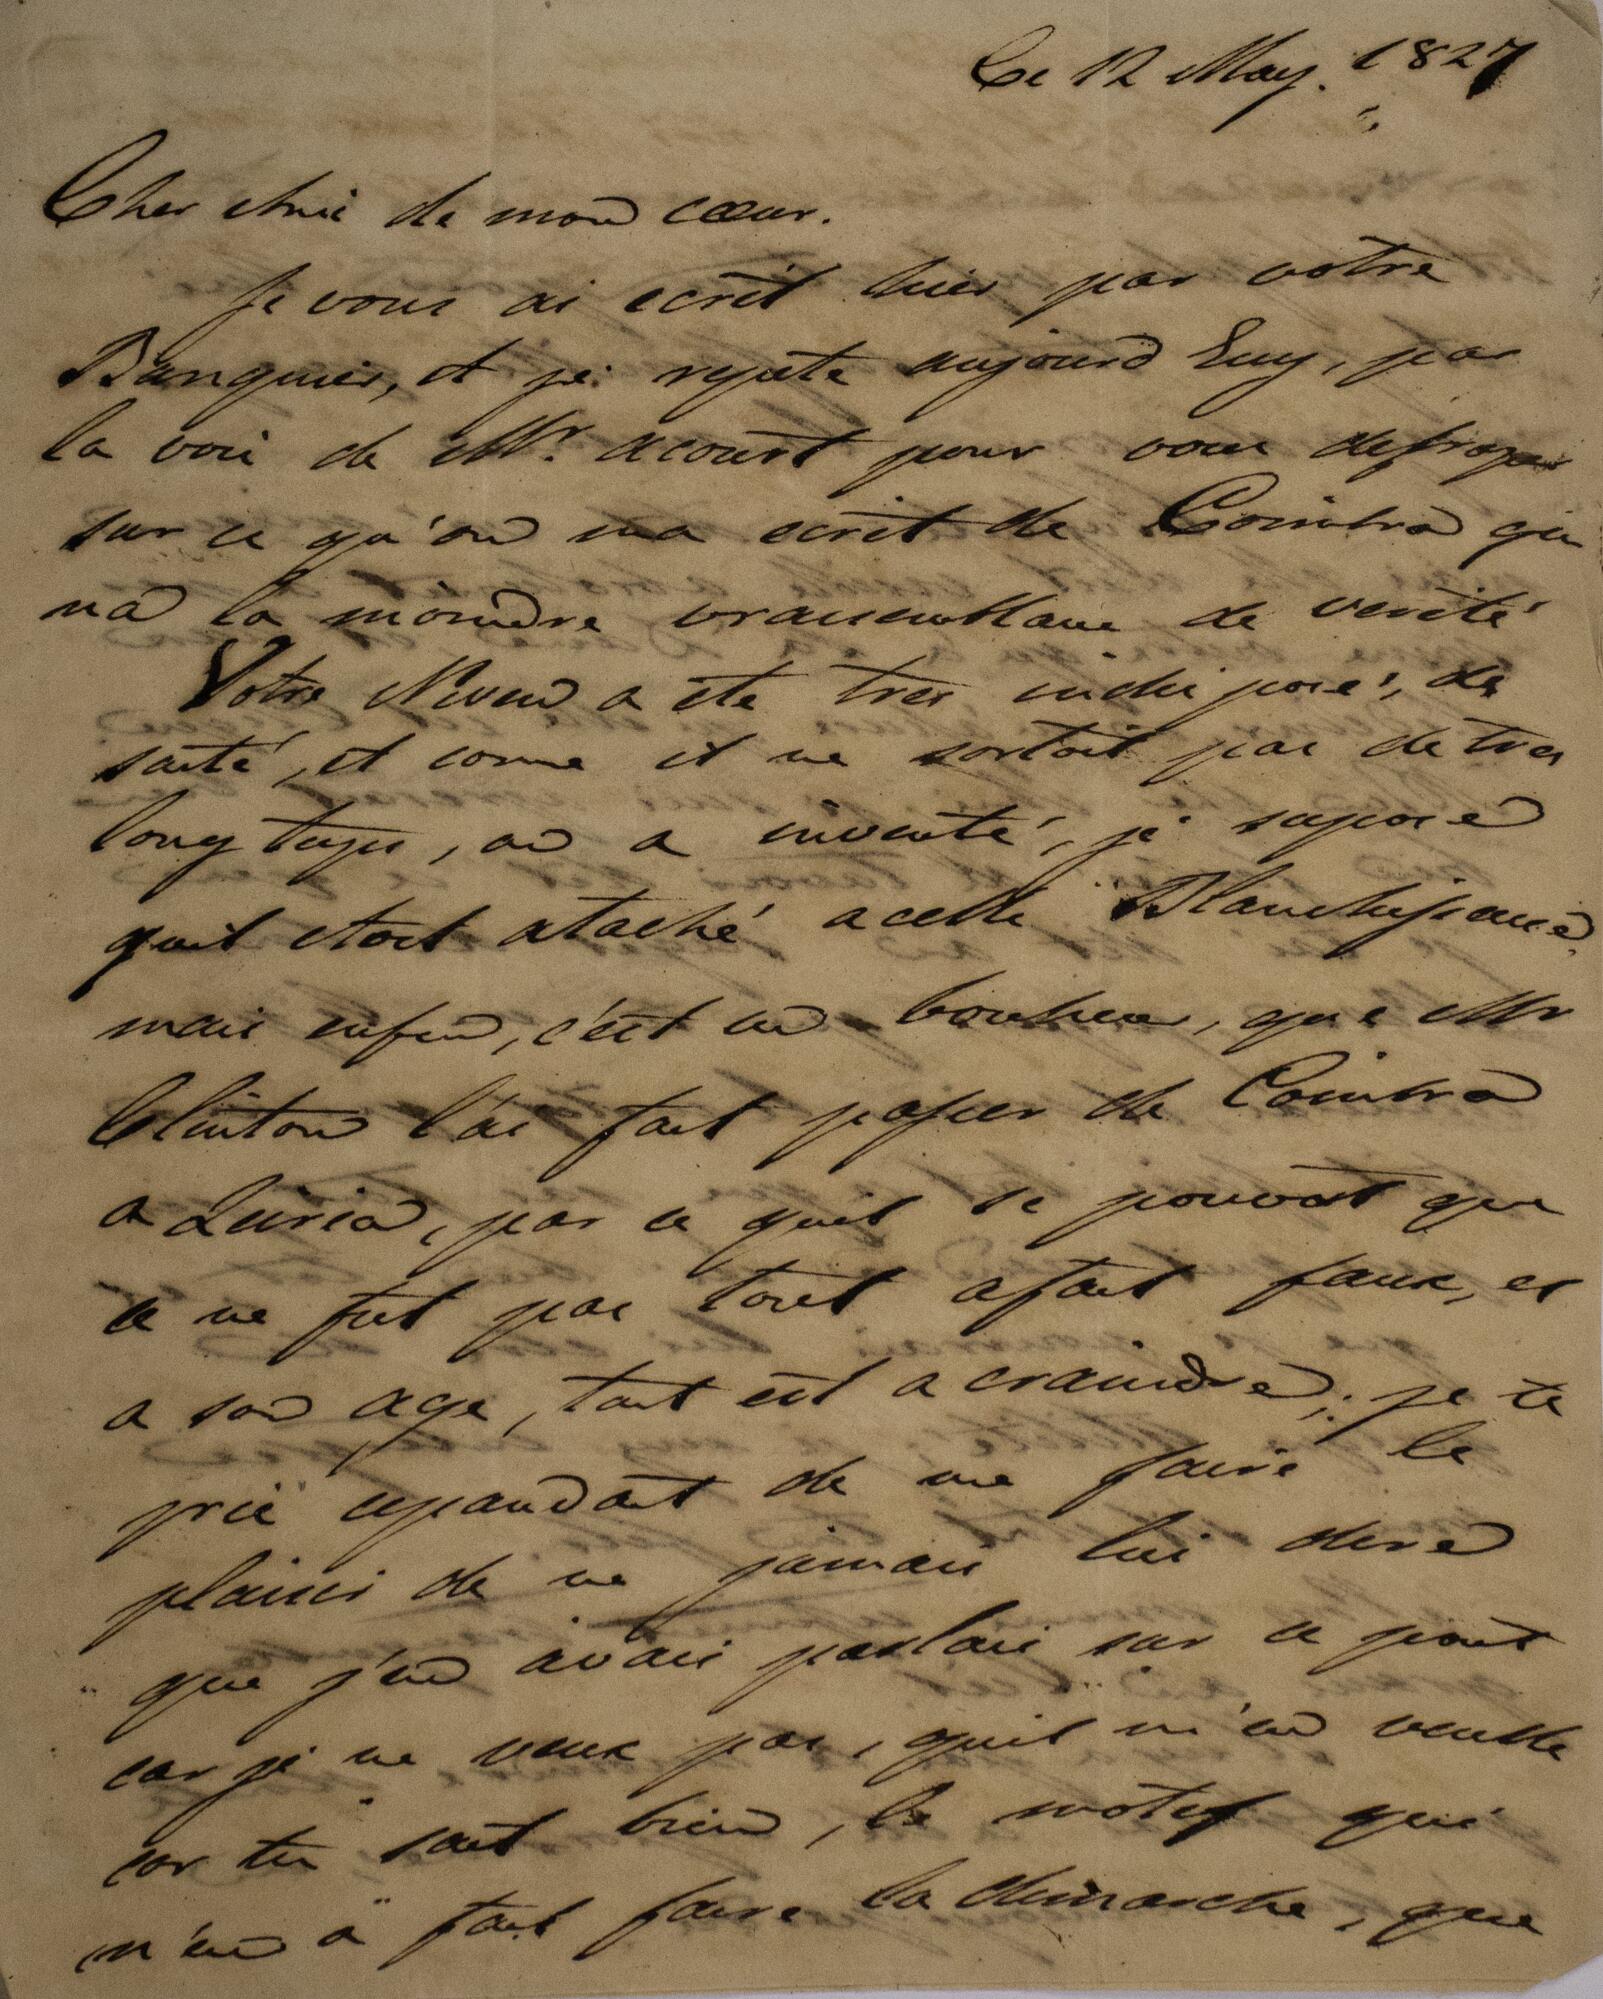 Le 12 May. 1827
Cher Ami de mon cœur.
Je vous ai ecrit hier par votre
Banquier, et je repete aujourd huy, par
la voie de Mr. Acourt pour vous
sur ce qu'on ma ecrit de Coimbra qui
na la moindre vraisemblance de verité
Votre Neveu a ete tres indisposé, de
santé, et come il ne sortoit pas de tres
long temps, on a inventé, je supose
quil etoit ataché a cette
mais enfin, c'est un bonheur, que Mr
Clinton l'ai fait passer de Coimbra
a Leiria, par ce quil se pouvoit que
ce ne fut pas tout afait faux, et
a son age, tout est a craindre; je te
prie cepandant de me faire le
plaisir de ne jamais lui dire
que j'en avais parlais sur ce point
car je ne veux pas, quil m'en veulle
car tu sait bien, le motif qui
m'en a fait faire la demarche, que